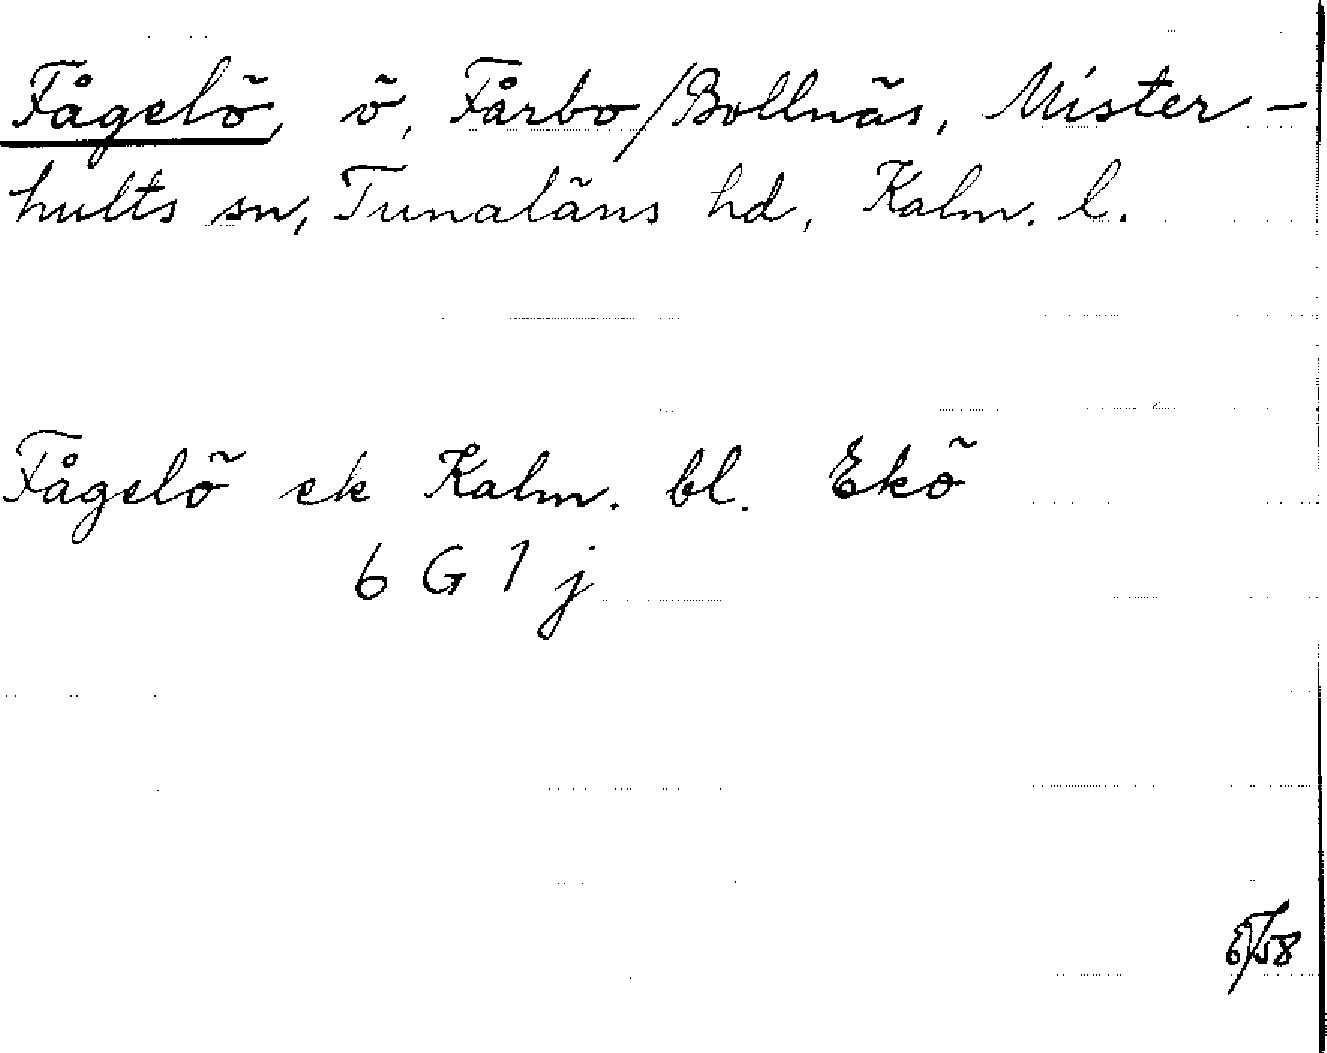 Fågelö, ö, Fårbo/Bollnäs, Mister-
hults sn, Tunaläns hd, Kalm. l.
Fågelö ek Kalm. bl. Ekö
6 G 1 j